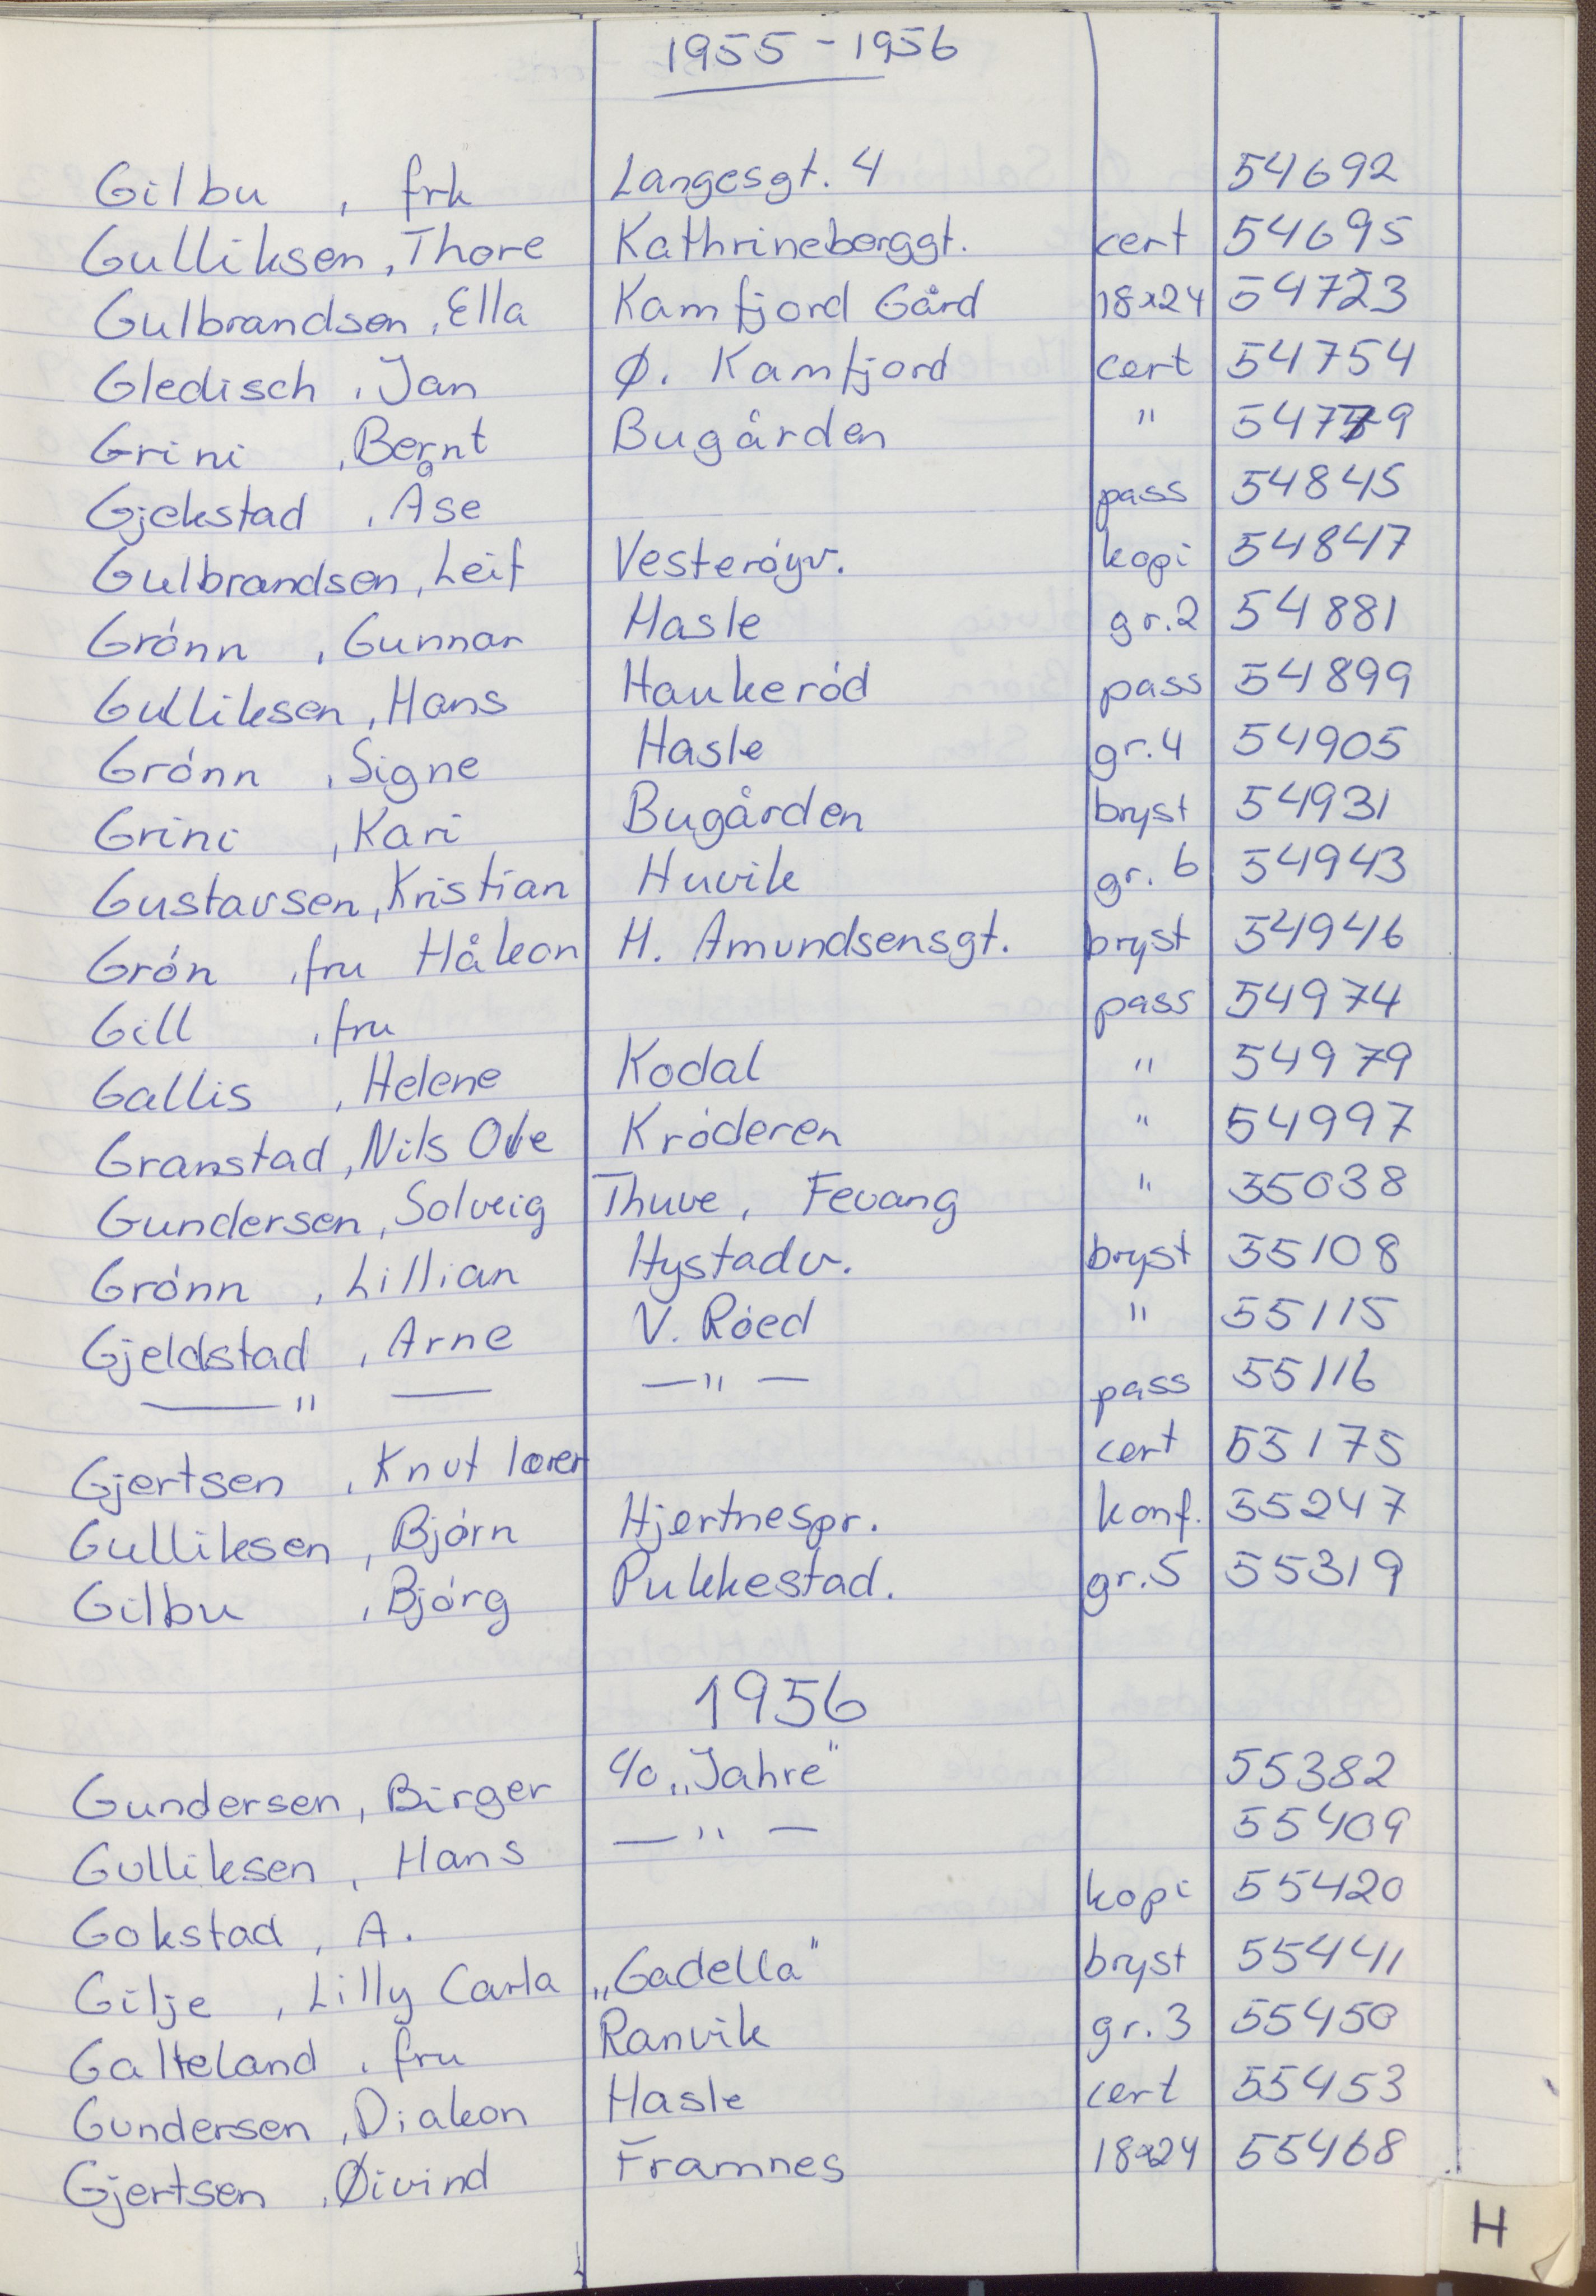 1955 - 1956
Gilbu , frk Langesgt. 4 54692
Gulliksen, Thore Kathrineborggt. cert 54695
Gulbrandsen, Ella Kamfjord Gård 18x24 54723
Gledisch, Jan Ø. Kamfjord cert 54754
Grini , Bernt Bugården "
Gjekstad , Åse pass 54845
Gulbrandsen, Leif Vesteróyv. kopi 54847
Grónn , Gunnar Hasle gr.2 54881
Gulliksen, Hans Haukeród pass 54899
Grónn , Signe Hasle gr.4 54905
Grini , Kari Bugården bryst 54931
Gustavsen, Kristian Huvik gr. 6 54943
Grón , fru Håkon H. Amundsensgt. bryst 54946
Gill , fru pass 54974
Gallis , Helene Kodal " 54979
Granstad, Nils Ove Króderen " 54997
Gundersen, Solveig Thuve, Fevang " 55038
Grónn , Lillian Hystadv. bryst 55108
Gjeldstad , Arne V. Róed " 55115
— " — — " — pass 55116
Gjertsen , Knut lærer cert 55175
Gulliksen, Bjórn Hjertnespr. konf. 55247
Gilbu , Bjórg Pukkestad. gr.5 55319
1956
Gundersen, Birger c/o „Jahre" 55382
Gulliksen, Hans — " — 55409
Gokstad, A. kopi 55420
Gilje , Lilly Carla „Gadella" bryst 55441
Galteland , fru Ranvik gr. 3 55450
Gundersen, Diakon Hasle cert 55453
Gjertsen , Øivind Framnes 18x24 55468
H